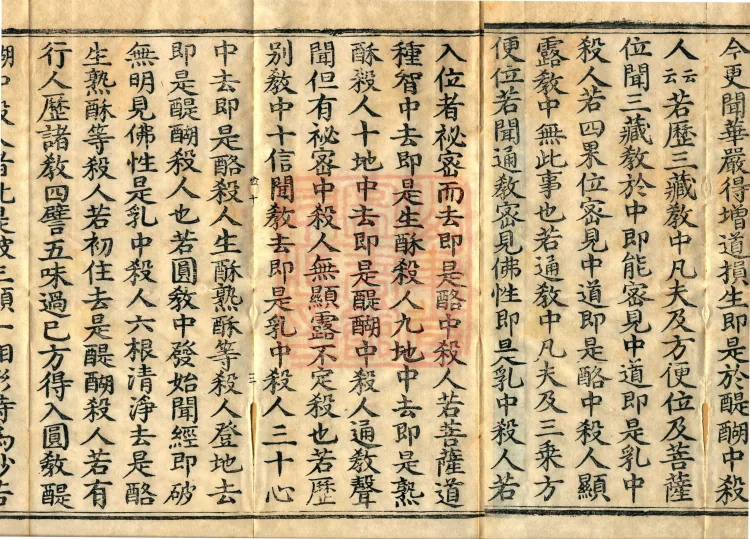 今更聞華嚴得增道損生即是於醍醐中殺
人云云若歷三藏教中凡夫及方便位及菩薩
位聞三藏教於中即能密見中道即是乳中
殺人若四果位密見中道即是酪中殺人顯
露教中無此事也若通教中凡夫及三乘方
便位若聞通教密見佛性即是乳中殺人若
入位者祕密而去即是酪中殺人若菩薩道
種智中去即是生酥殺人九地中去即是熟
酥殺人十地中去即是醍醐中殺人通教聲
聞但有祕密中殺人無顯露不定殺也若歷
別教中十信聞教去即是乳中殺人三十心
三
中去即是酪殺人生酥熟酥等殺人登地去
即是醍醐殺人也若圓教中發始聞經即破
無明見佛性是乳中殺人六根清淨去是酪
生熟酥等殺人若初住去是醍醐殺人若有
行人歷諸教四譬五味過已方得入圓教醍
醐中殺人者此是破三顯一相待為妙若